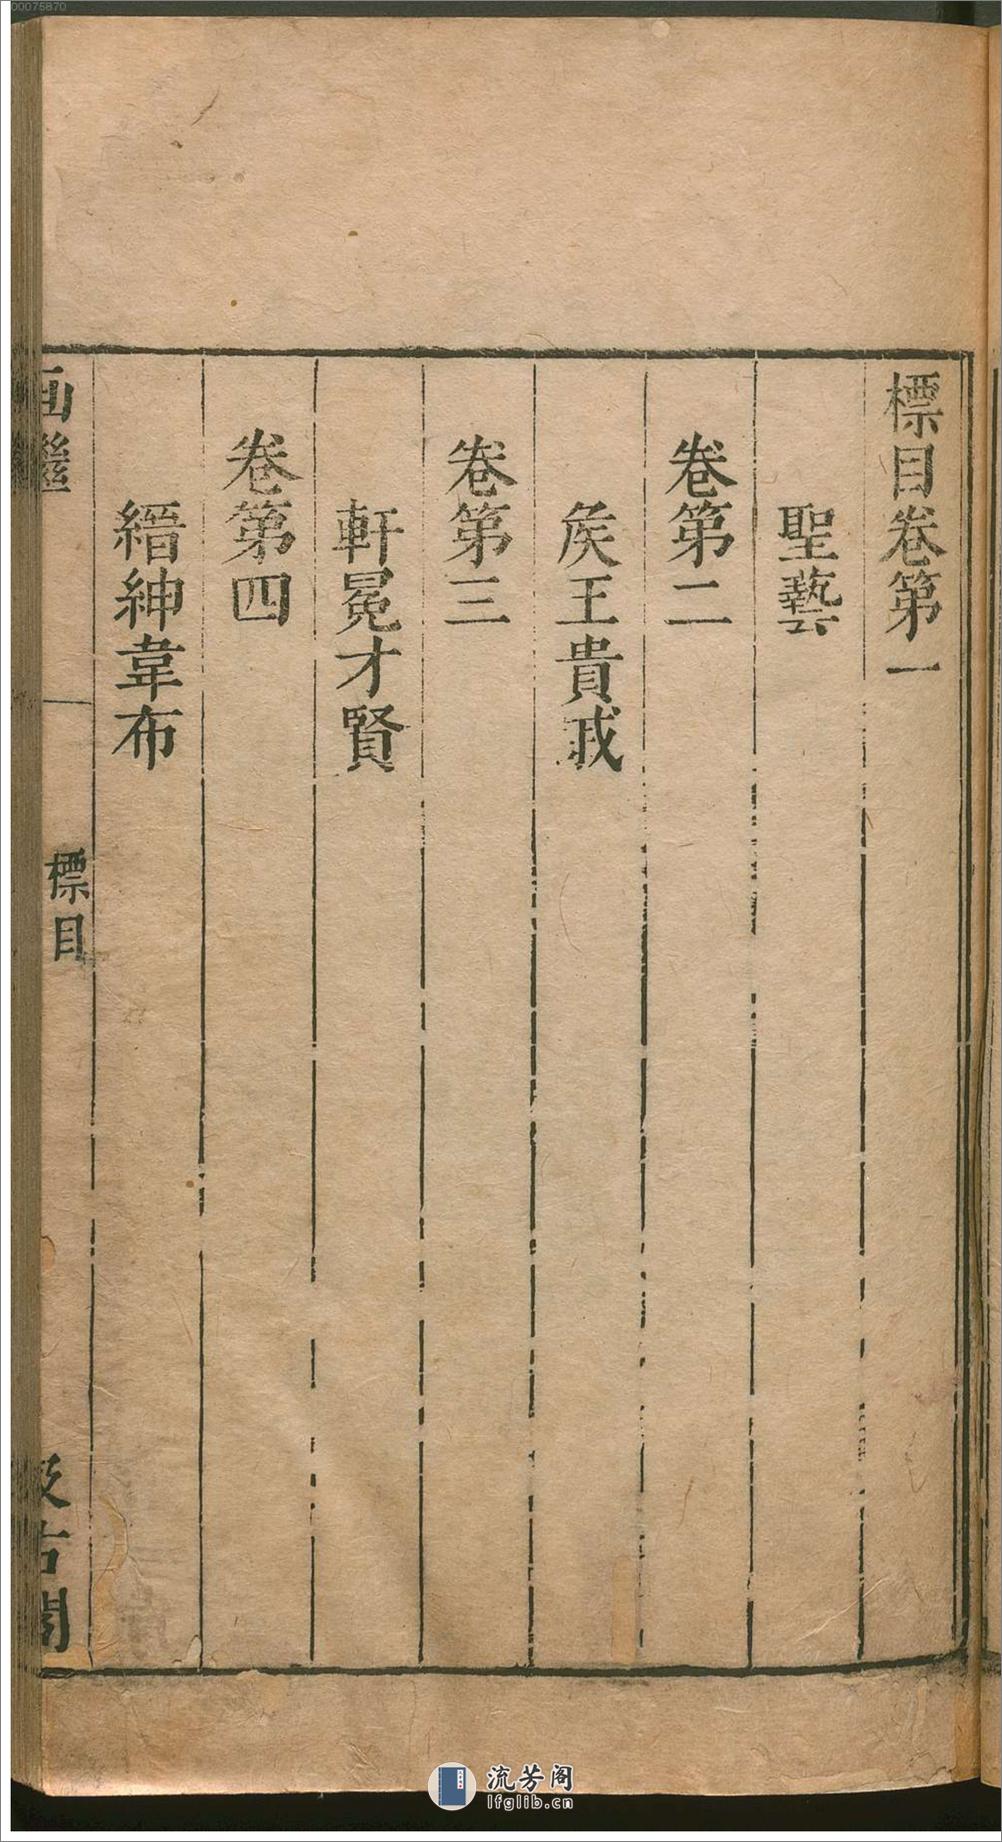 標目卷第一
聖藝
卷第二
矦王貴戚
卷第三
軒冕才賢
卷第四
縉紳韋布
画繼
標目
汲古閣
00075870
流芳阁
lfglib.cn